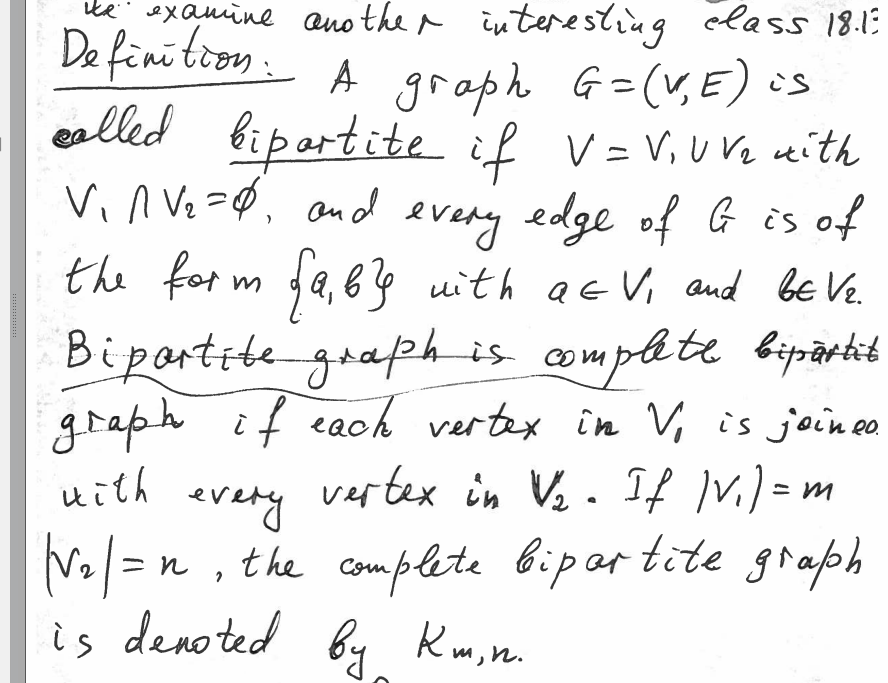 we examine another interesting class 18.13
Definition: A graph G=(V,E) is
called bipartite if V = V₁ ∪ V₂ with
V₁ ∩ V₂ = ∅, and every edge of G is of
the form {a,b} with a ∈ V₁ and b ∈ V₂.
Bipartite graph is complete bipartit
graph if each vertex in V₁ is joined
with every vertex in V₂. If |V₁| = m
|V₂| = n, the complete bipartite graph
is denoted by Km,n.